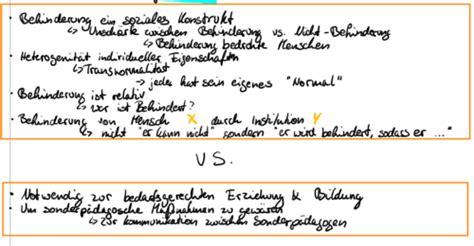 • Behinderung ein soziales Konstrukt
↳ Unschärfe zwischen Behinderung vs. Nicht-Behinderung
↳ Behinderung bedrohte Menschen
• Heterogenität individueller Eigenschaften
↳ Transnormalität
→ jeder hat sein eigenes "Normal"
• Behinderung ist relativ
↳ wer ist Behindert?
• Behinderung von Mensch X durch Institution Y
↳ nicht "er kann nicht" sondern "er wird behindert, sodass er ..."
VS.
• Notwendig zur bedarfsgerechten Erziehung & Bildung
• Um sonderpädagosche Maßnahmen zu gewären
↳ Zur Kommunikation zwischen Sonderpädagogen